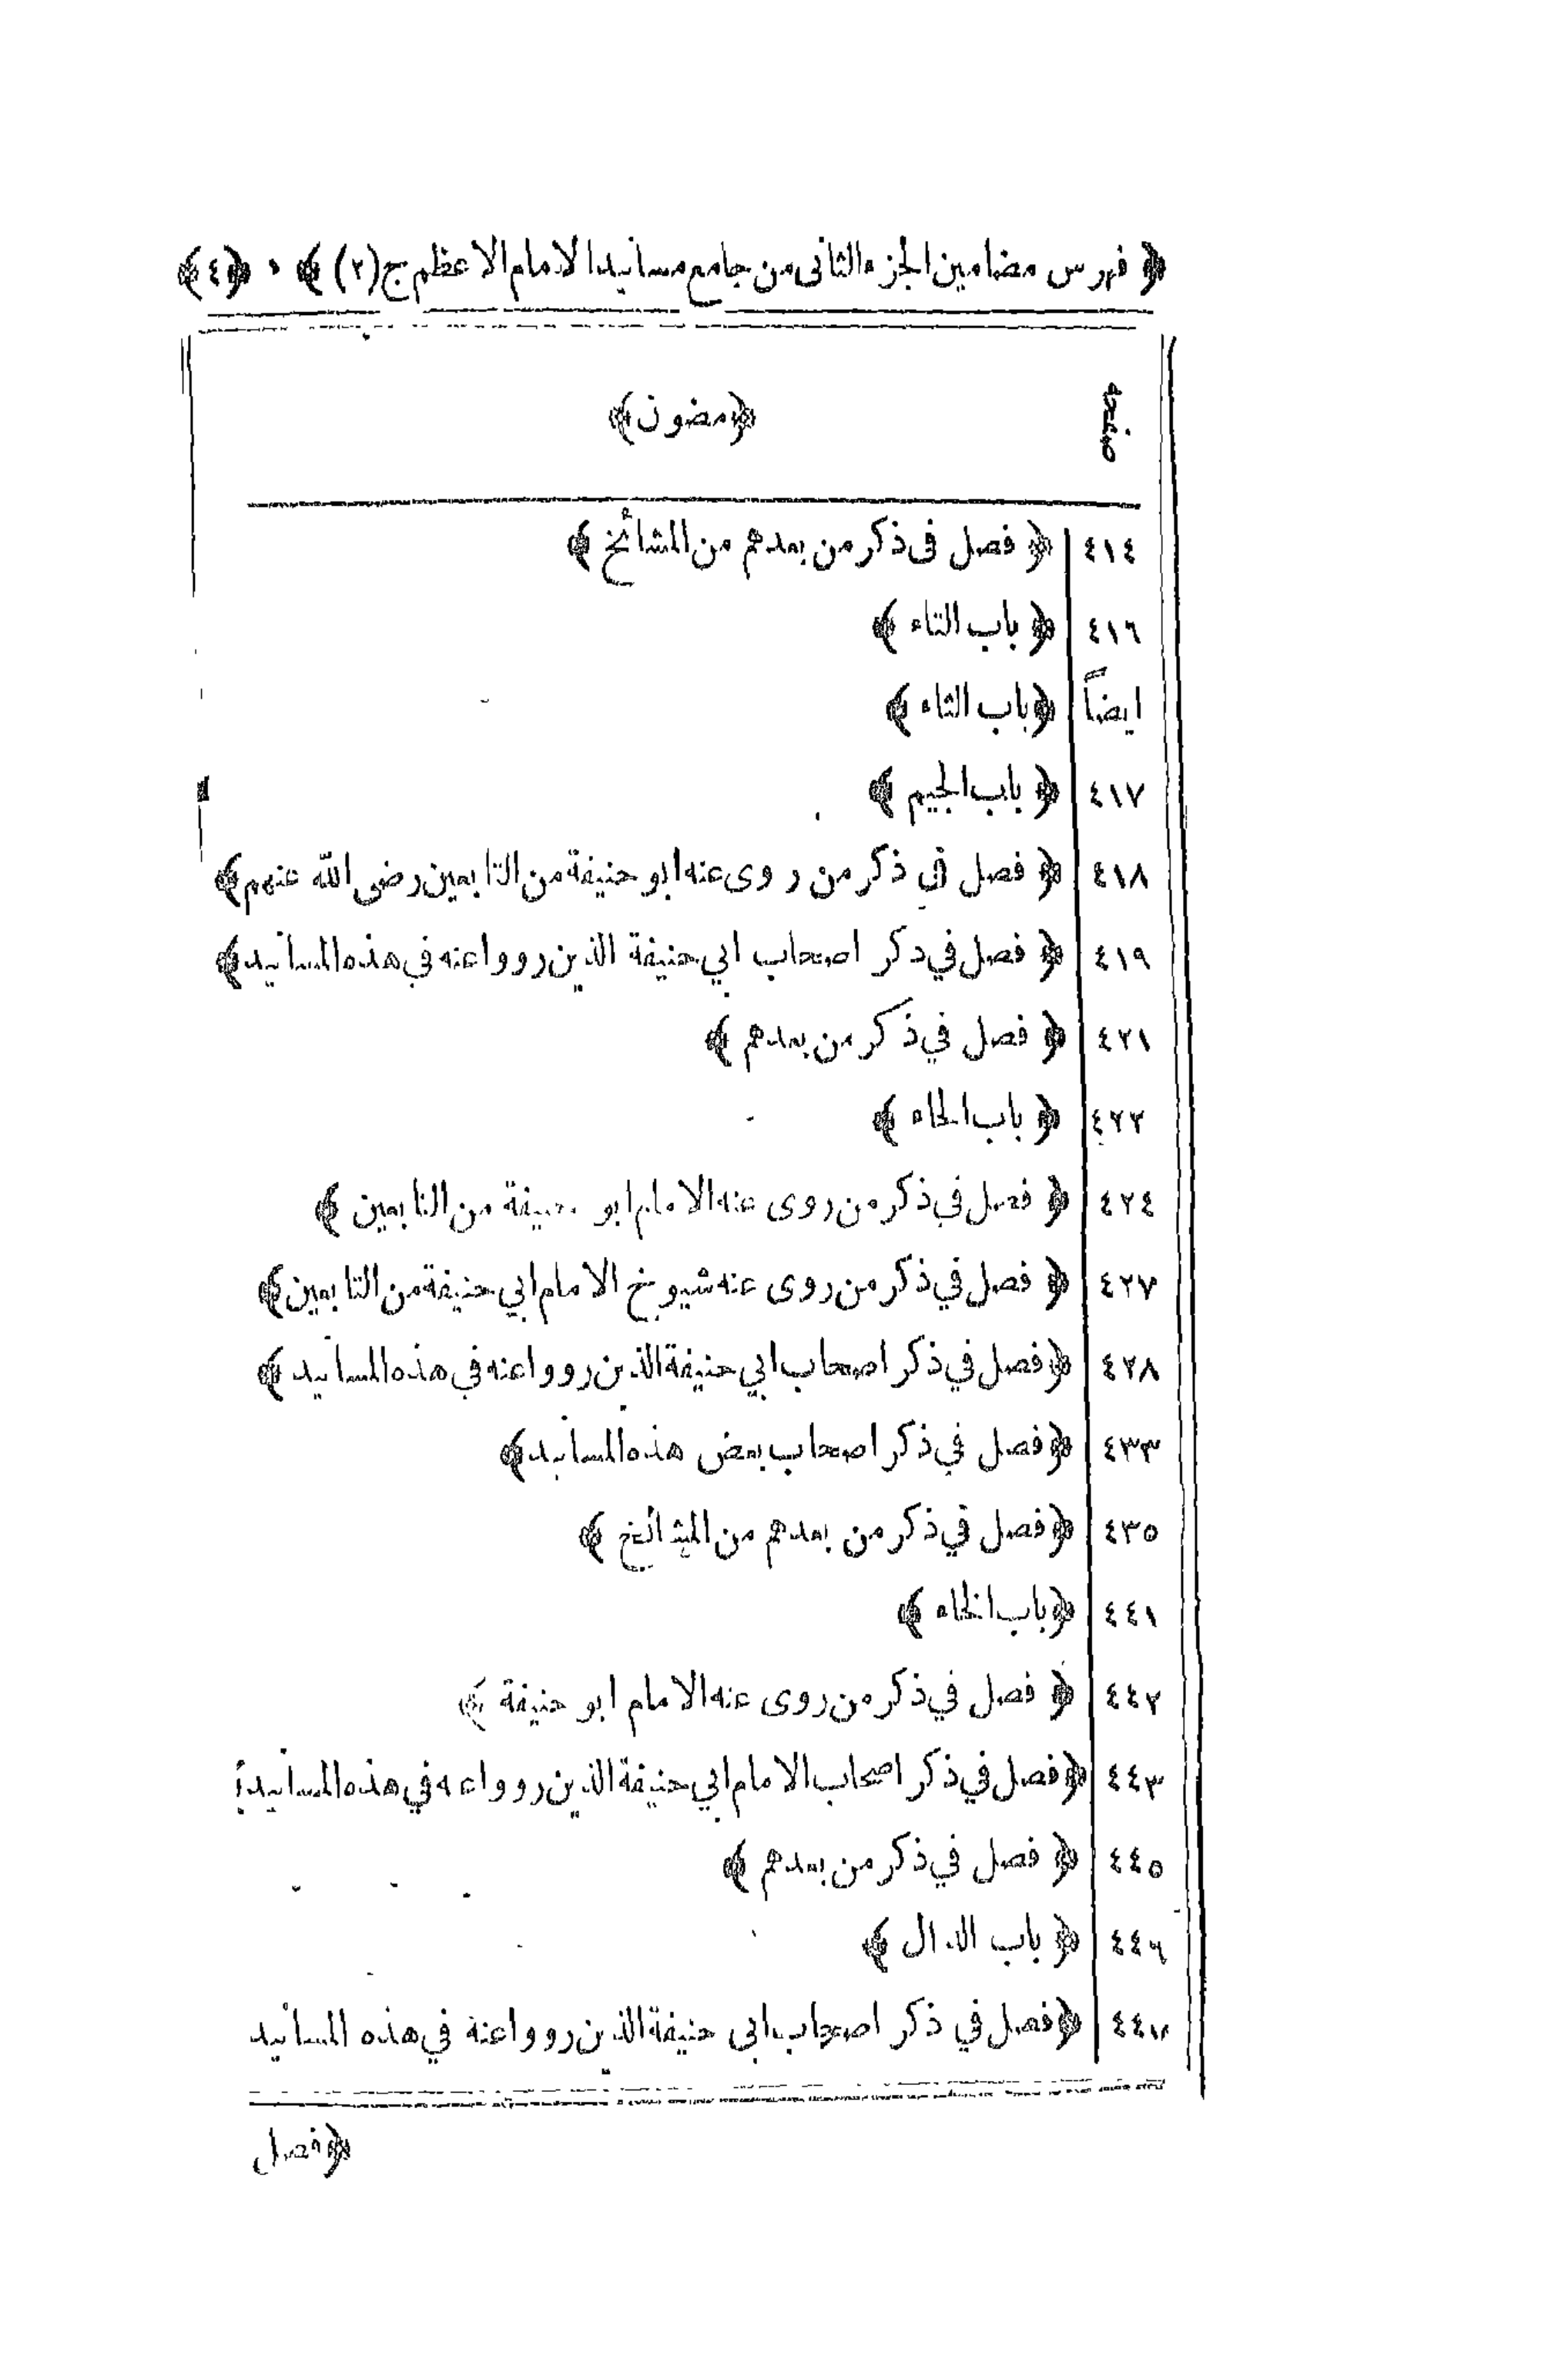 ﴿ فهرس مضامين الجزء الثانى من جامع مسانيد الامام الاعظم ج (٢) ﴾ ﴿٤﴾
صفحه ﴿مضون﴾
٤١٤ ﴿ فصل فى ذكر من بعدهم من المشائخ ﴾
٤١٦ ﴿ باب التاء ﴾
ايضاً ﴿ باب الثاء ﴾
٤١٧ ﴿ باب الجيم ﴾
٤١٨ ﴿ فصل في ذكر من روى عنه ابو حنيفة من التابعين رضى الله عنهم﴾
٤١٩ ﴿ فصل في ذكر اصحاب ابي حنيفة الذين رووا عنه في هذه المسانيد﴾
٤٢١ ﴿ فصل في ذكر من بعدهم ﴾
٤٢٢ ﴿ باب الحاء ﴾
٤٢٤ ﴿ فصل في ذكر من روى عنه الامام ابو حنيفة من التابعين ﴾
٤٢٧ ﴿ فصل في ذكر من روى عنه شيوخ الامام ابي حنيفة من التابعين﴾
٤٢٨ ﴿ فصل في ذكر اصحاب ابي حنيفة الذين رووا عنه في هذه المسانيد ﴾
٤٣٣ ﴿ فصل في ذكر اصحاب بعض هذه المسانيد﴾
٤٣٥ ﴿ فصل في ذكر من بعدهم من المشائخ ﴾
٤٤١ ﴿ باب الخاء ﴾
٤٤٢ ﴿ فصل في ذكر من روى عنه الامام ابو حنيفة ﴾
٤٤٣ ﴿ فصل في ذكر اصحاب الامام ابي حنيفة الذين رووا عنه في هذه المسانيد﴾
٤٤٥ ﴿ فصل في ذكر من بعدهم ﴾
٤٤٦ ﴿ باب الدال ﴾
٤٤٧ ﴿ فصل في ذكر اصحاب ابى حنيفة الذين رووا عنه في هذه المسانيد
﴿فصل